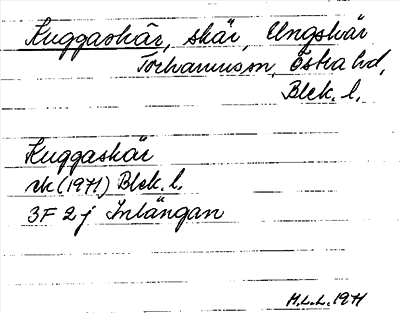 Kuggaskär, skär, Ungskär
Torhamns sn, Östra hd,
Blek. l.
Kuggaskär
rk (1971) Blek. l.
3F 2j Inlängan
M.L.L. 1971